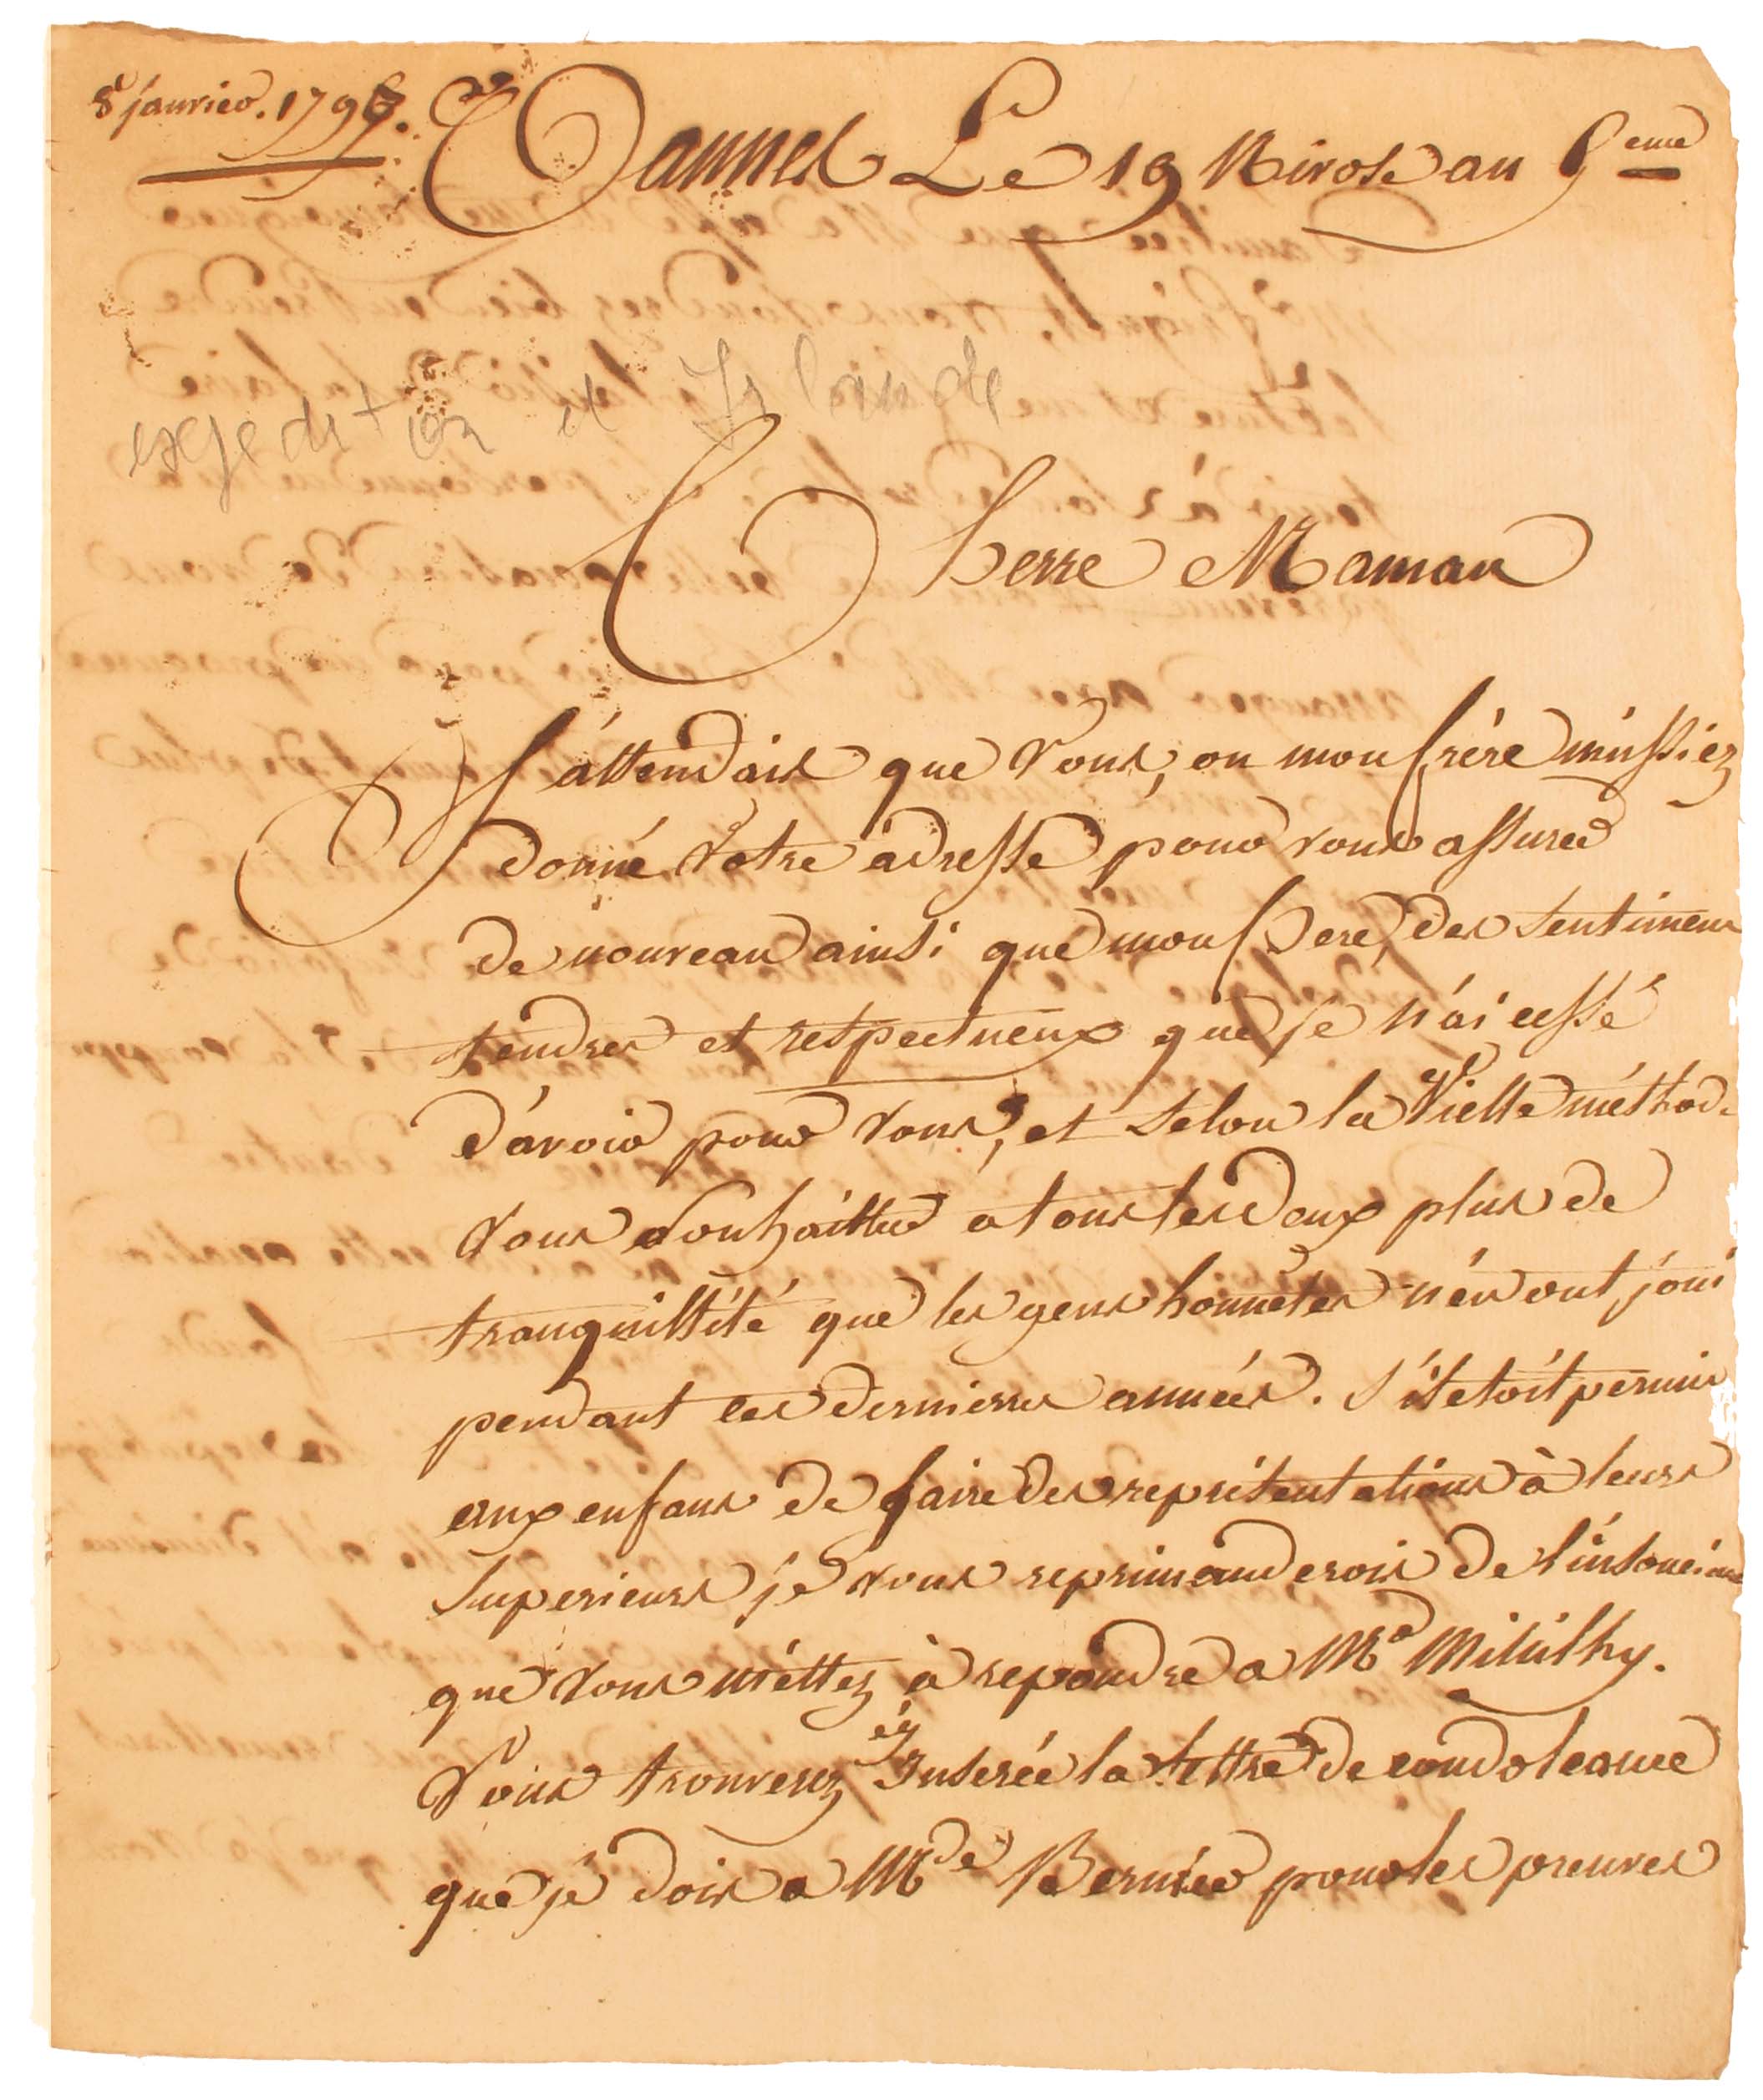 8 janvier. 1797.
Vannes Le 19 Nivose an 5eme
expedition d Islande
Cherre Maman
J'attendais que Vous, ou mon frère m'ussiez
donné Votre adresse pour vous assurer
de nouveau ainsi que mon Pere, des sentimens
tendres et respectueux que je n'ai cessé
d'avoir pour Vous, et selon la Vielle méthode
Vous souhaitter a tous les deux plus de
tranquillité que les gens honnêtes n'en ont joui
pendant ces dernieres années. S'il etoit permis
aux enfans de faire des representations à leurs
Superieurs je vous reprimanderois de l'insouciance
que Vous mettez à repondre a Md
Vous trouverez cy Inserée la lettre de condoleance
que je dois a Mde Bernier pour les preuves